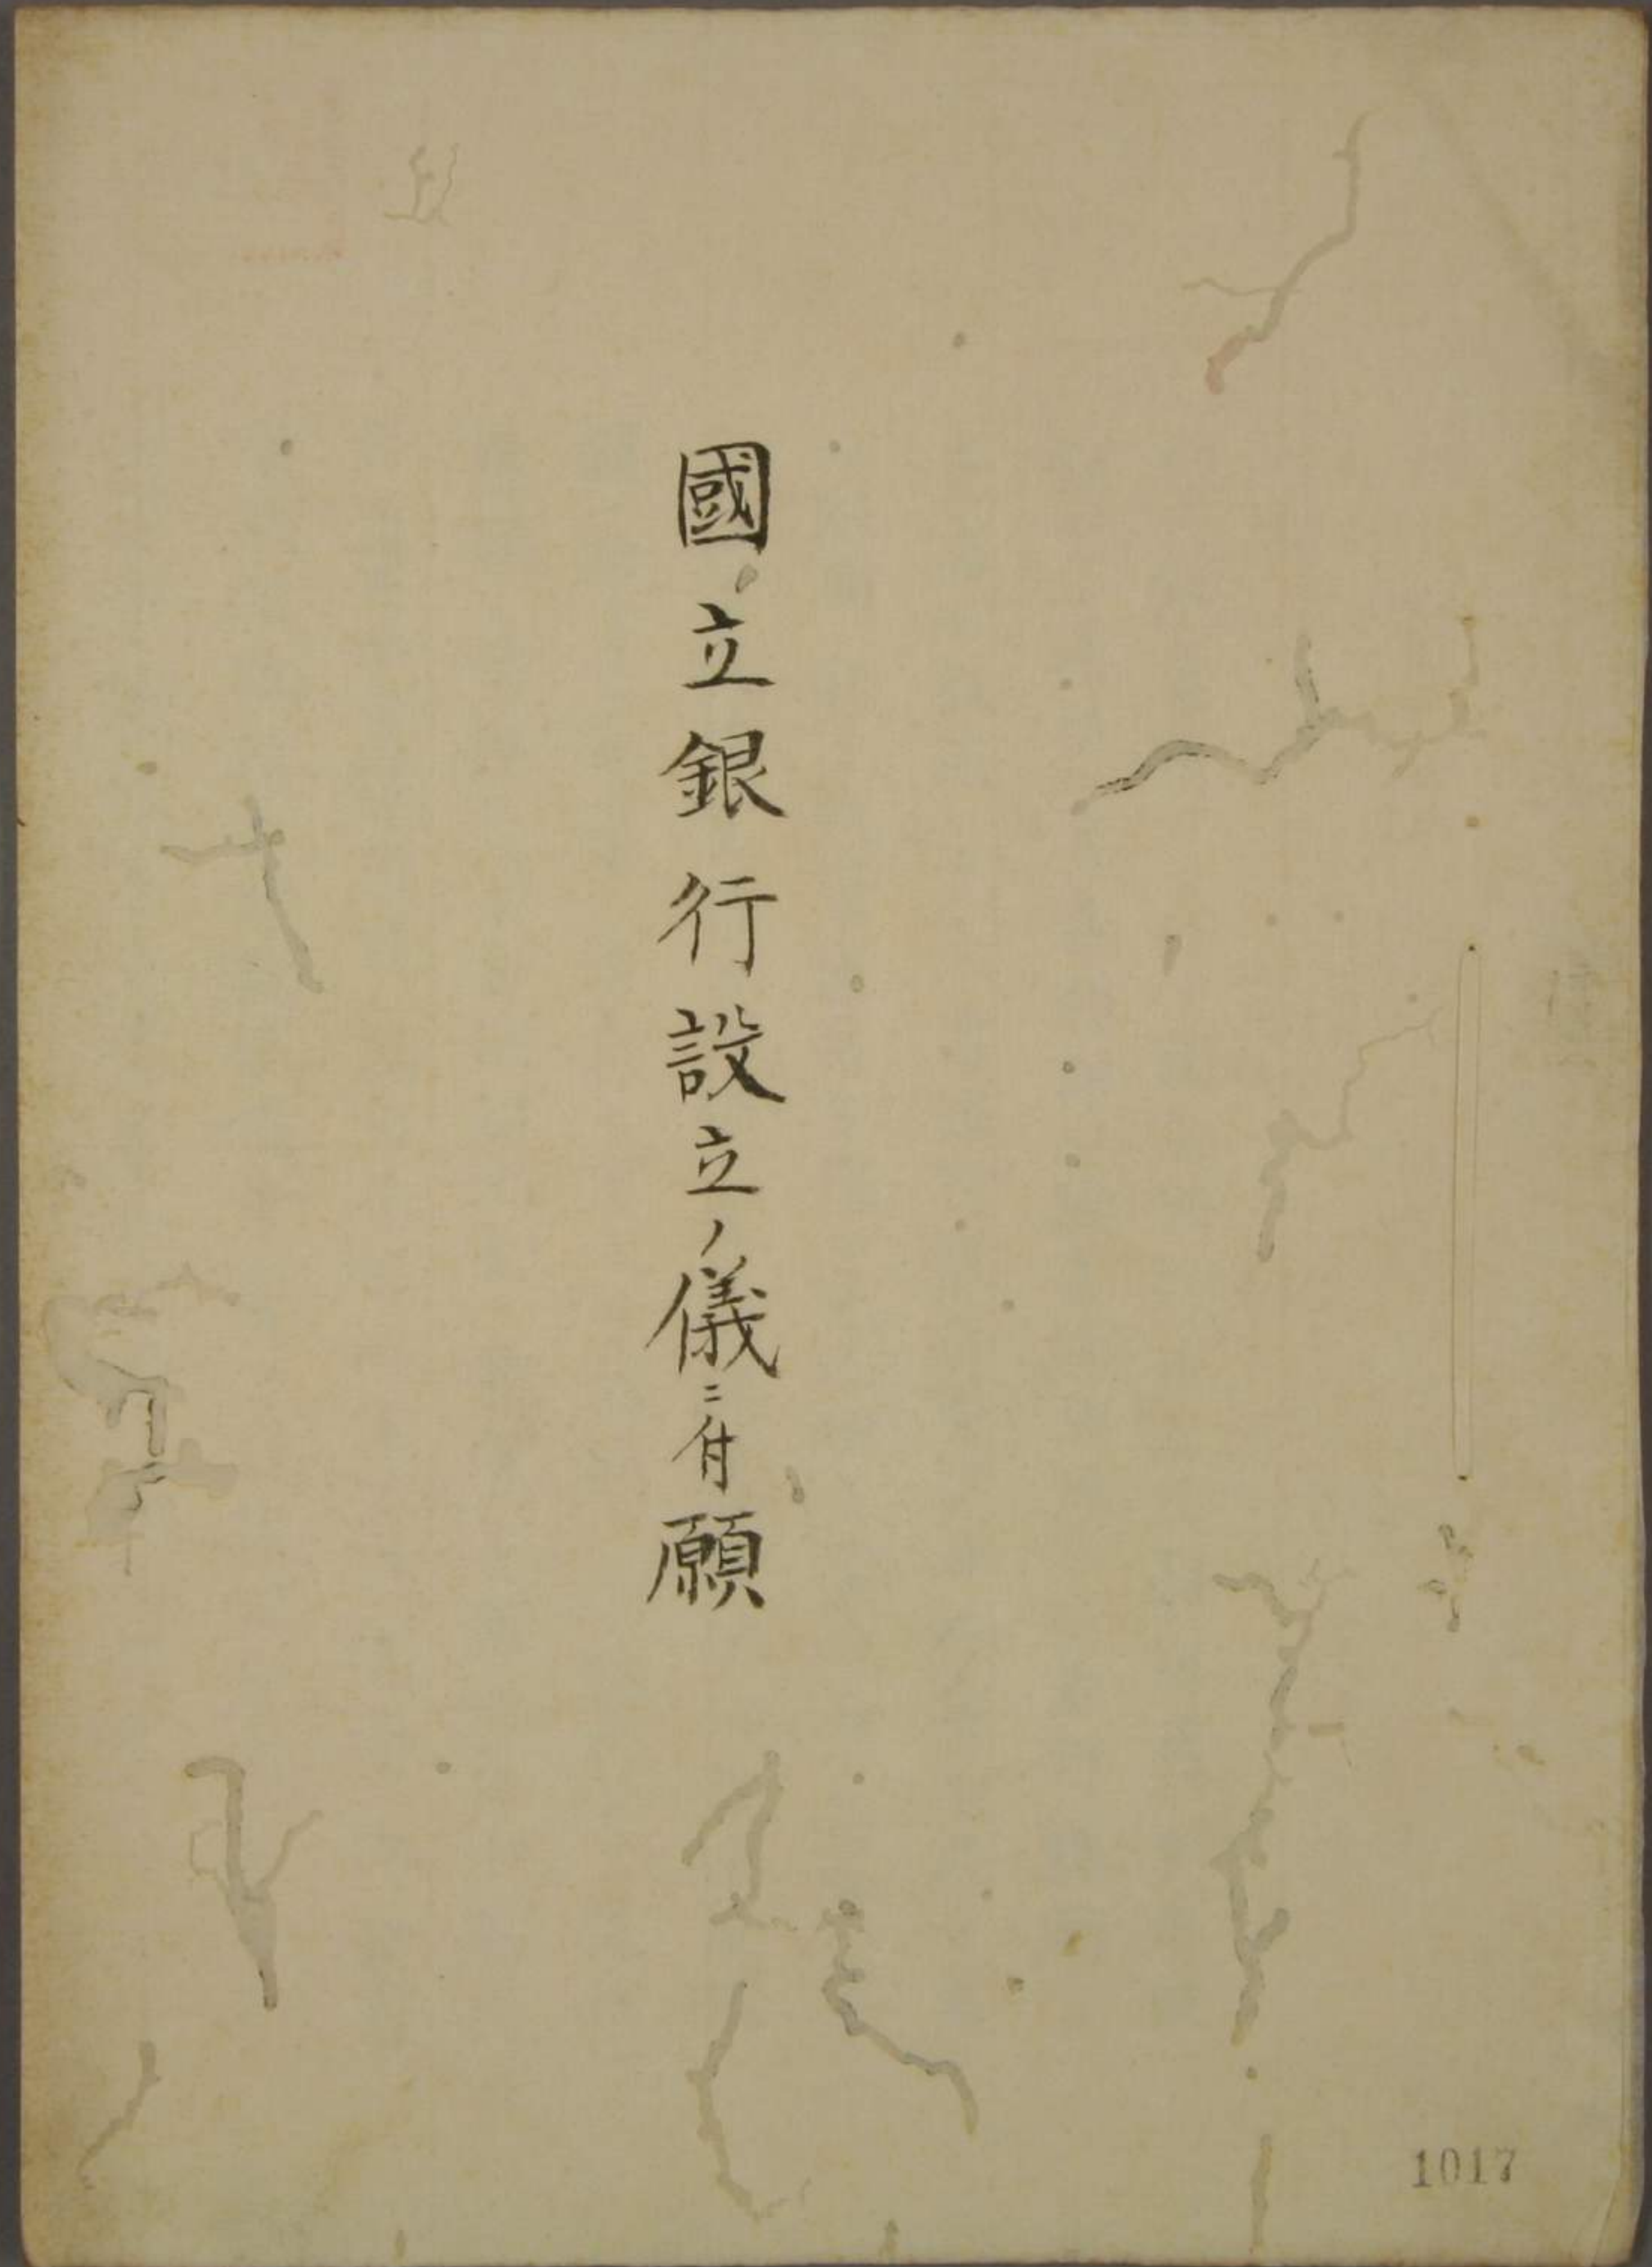 國立銀行設立ノ儀ニ付願
1017